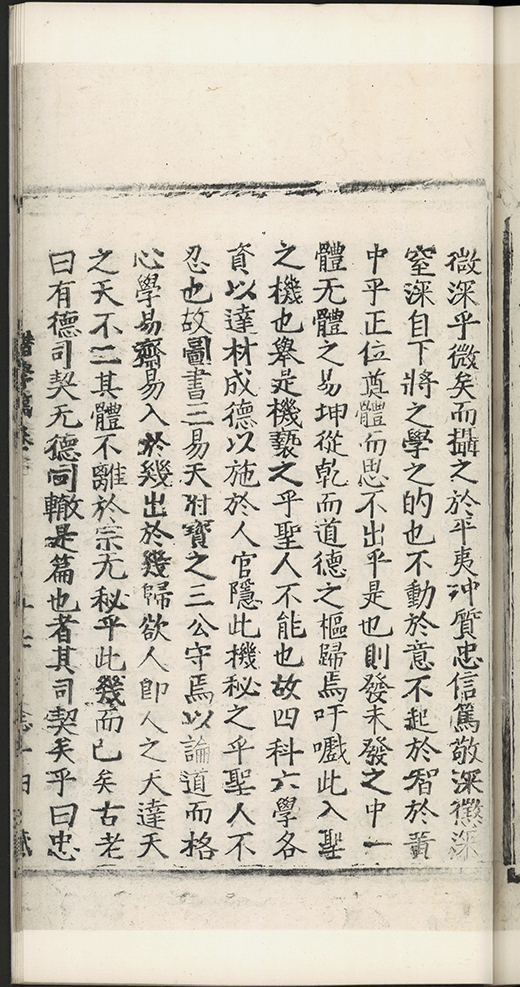 微深乎微矣而攝之於平夷沖質忠信篤敬深懲深
窒深自下將之學之的也不動於意不起於智於黃
中乎正位奠體而思不出乎是也則發未發之中一
體无體之易坤從乾而道德之樞歸焉吁嚱此入聖
之機也舉是機褻之乎聖人不能也故四科六學各
資以達材成德以施於人官隱此機秘之乎聖人不
忍也故圖書三易天府寶之三公守焉以論道而格
心學易齋易入於幾出於幾歸欲人卽人之天達天
之天不二其體不離於宗尤秘乎此幾而已矣古老
曰有德司契无德司轍是篇也者其司契矣乎曰忠